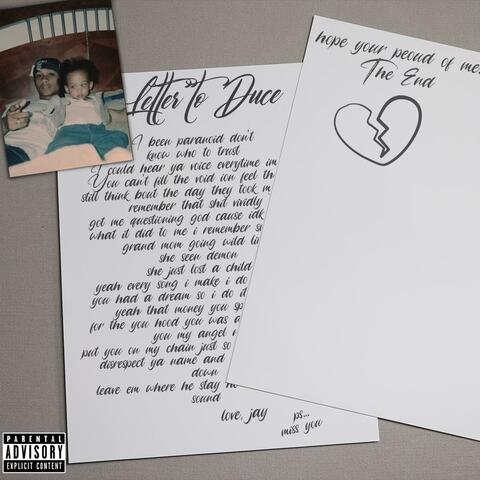 Letter to Duce
I been paranoid don't
know who to trust
I could hear ya voice everytime im
You can't fill the void ion feel th
still think bout the day they took m
remember that shit vividly
got me questioning god cause idk
what it did to me i remember so
grand mom going wild li
she seen demon
she just lost a child
yeah every song i make i do
you had a dream so i do it
yeah that money you sp
for the you hood you was a
you my angel n
put you on my chain just so
disrespect ya name and
down
leave em where he stay
sound
love, jay
ps...
miss you
hope your peoud of me.
The End
PARENTAL
ADVISORY
EXPLICIT CONTENT